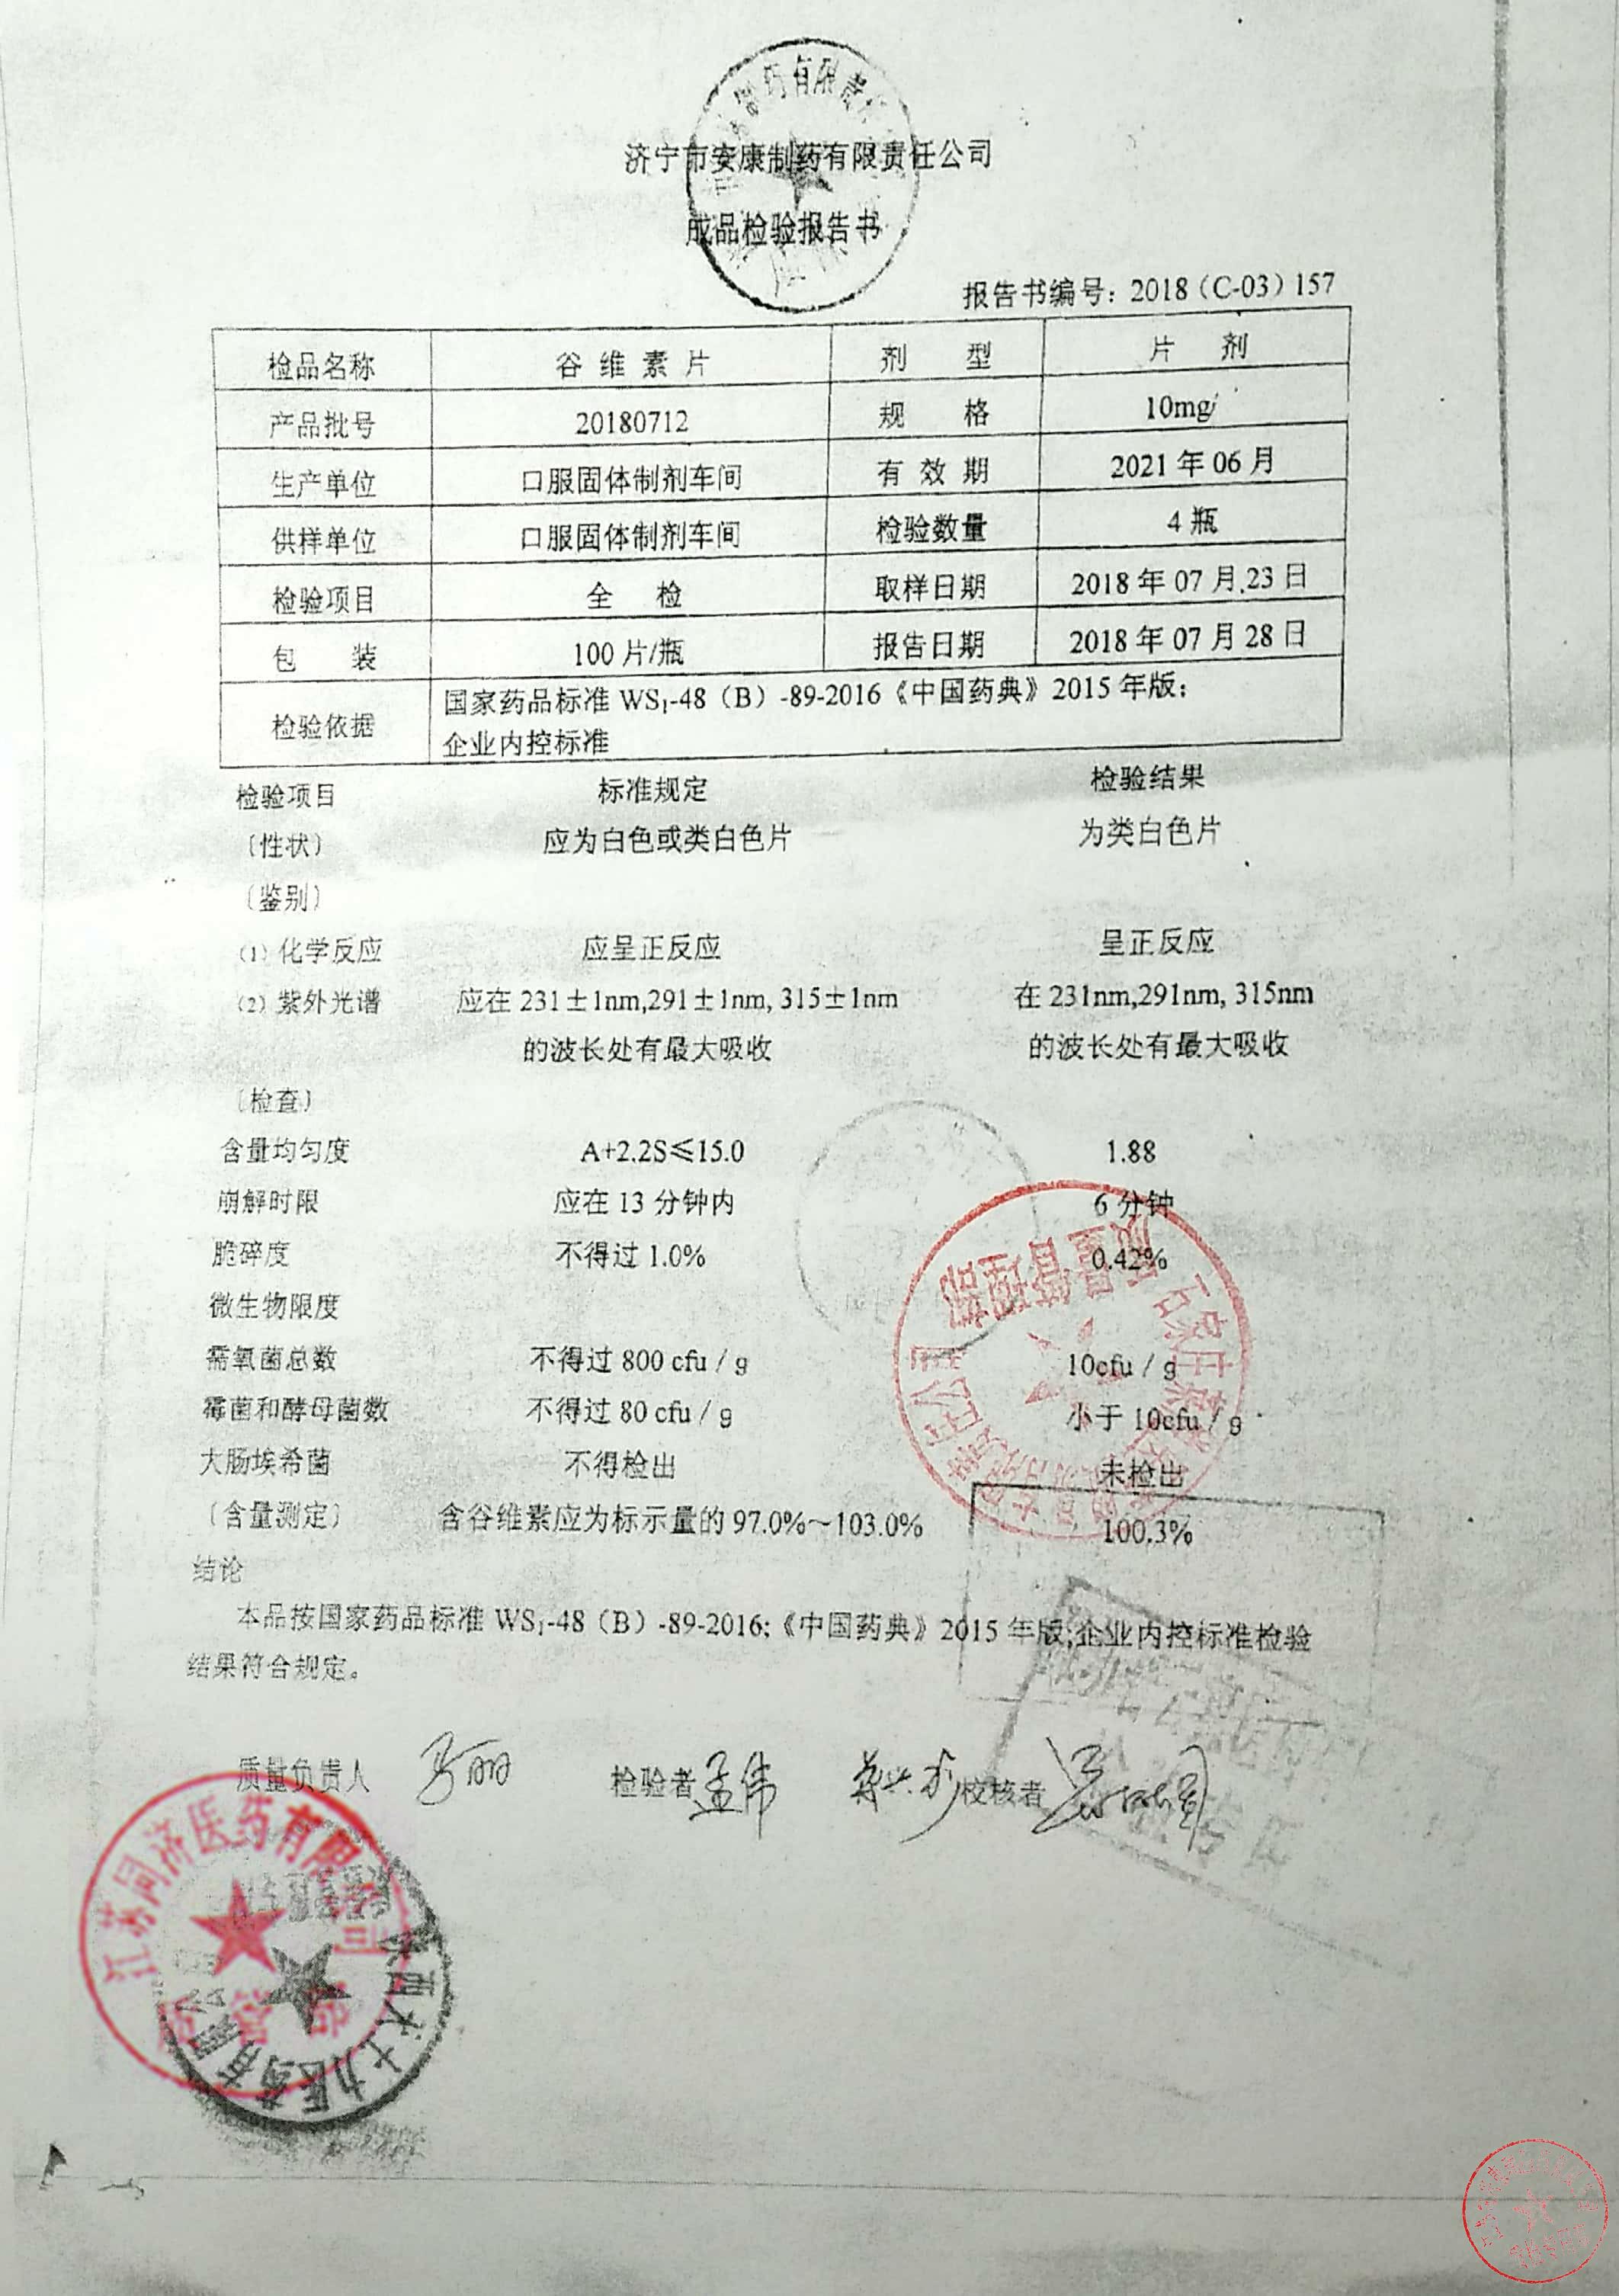 济宁市安康制药有限责任公司
成品检验报告书
报告书编号：2018（C-03）157
检品名称 谷维素片 剂 型 片 剂
产品批号 20180712 规 格 10mg
生产单位 口服固体制剂车间 有效期 2021年06月
供样单位 口服固体制剂车间 检验数量 4瓶
检验项目 全 检 取样日期 2018年07月23日
包 装 100片/瓶 报告日期 2018年07月28日
检验依据 国家药品标准WS₁-48（B）-89-2016《中国药典》2015年版；
企业内控标准
检验项目 标准规定 检验结果
〔性状〕 应为白色或类白色片 为类白色片
〔鉴别〕
（1）化学反应 应呈正反应 呈正反应
（2）紫外光谱 应在231±1nm,291±1nm, 315±1nm 在231nm,291nm, 315nm
的波长处有最大吸收 的波长处有最大吸收
〔检查〕
含量均匀度 A+2.2S≤15.0 1.88
崩解时限 应在13分钟内 6分钟
脆碎度 不得过1.0% 0.42%
微生物限度
需氧菌总数 不得过800 cfu / g 10cfu / g
霉菌和酵母菌数 不得过80 cfu / g 小于10cfu / g
大肠埃希菌 不得检出 未检出
〔含量测定〕 含谷维素应为标示量的97.0%～103.0% 100.3%
结论
本品按国家药品标准WS₁-48（B）-89-2016;《中国药典》2015年版,企业内控标准检验
结果符合规定。
质量负责人 马丽 检验者 孟伟 校核者
质量管理部
江苏同济医药有限公司
质管部